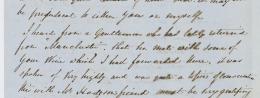 be prejudicial to either you or myself.
I heard from a Gentleman who has lately returned
from "Manchester", that he met with some of
your Wine which I had forwarded there, it was
spoken of very highly and was quite a
this with Mr friend must be very gratifying